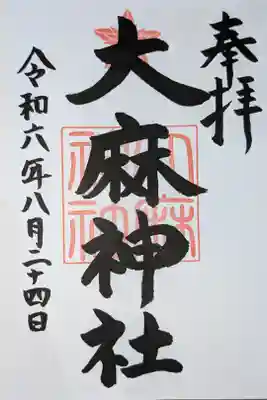 奉拝
大麻神社
令和六年八月二十四日